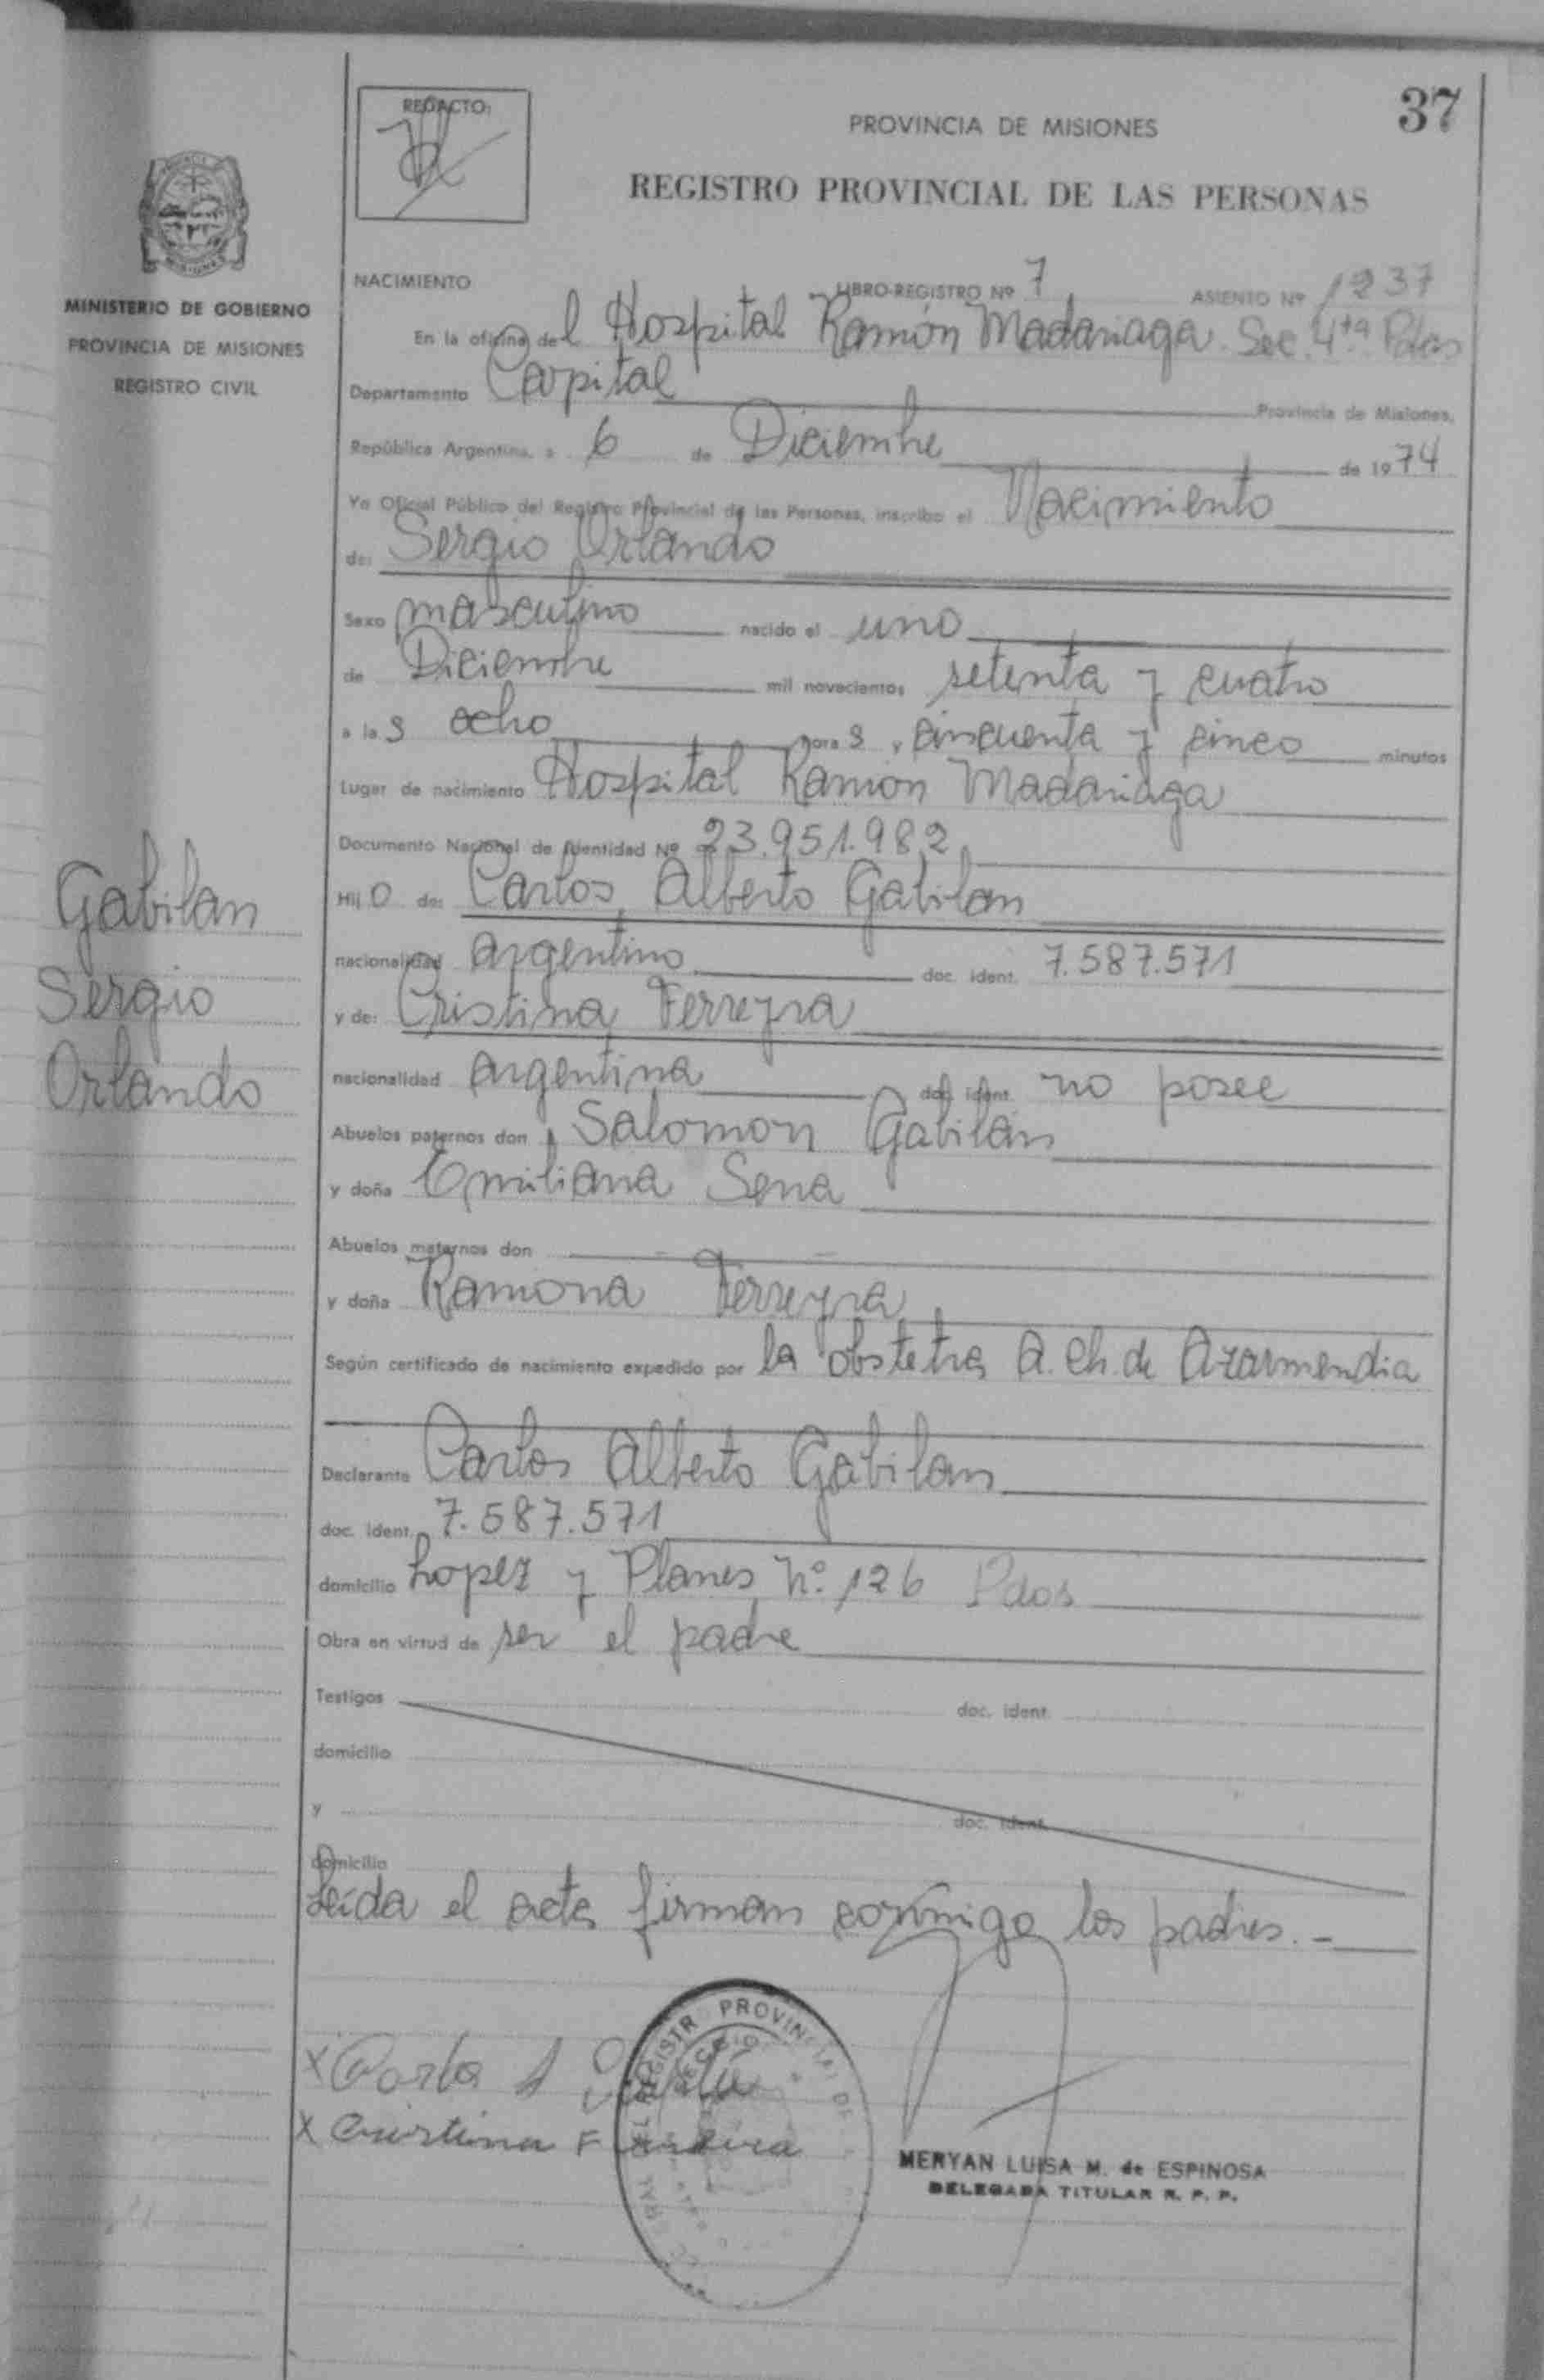 37
REDACTO:
PROVINCIA DE MISIONES
REGISTRO PROVINCIAL DE LAS PERSONAS
MINISTERIO DE GOBIERNO
PROVINCIA DE MISIONES
REGISTRO CIVIL
NACIMIENTO LIBRO-REGISTRO Nº 7 ASIENTO Nº 1237
En la oficina del Hospital Ramón Madariaga Sec. 4ta Pdas
Departamento Capital Provincia de Misiones,
República Argentina, a 6 de Diciembre de 1974
Yo Oficial Público del Registro Provincial de las Personas, inscribo el Nacimiento
de: Sergio Orlando
Sexo masculino nacido el uno
de Diciembre mil novecientos setenta y cuatro
a las ocho horas y cincuenta y cinco minutos
Lugar de nacimiento Hospital Ramón Madariaga
Documento Nacional de Identidad Nº 23.951.982
Hijo de: Carlos Alberto Gabilan
nacionalidad argentino doc. ident. 7.587.571
y de: Cristina Ferreyra
nacionalidad argentina doc. ident. no posee
Abuelos paternos don Salomon Gabilan
y doña Emiliana Sena
Abuelos maternos don
y doña Ramona Ferreyra
Según certificado de nacimiento expedido por la obstetra A. Ch. de Azarmendia
Gabilan
Sergio
Orlando
Declarante Carlos Alberto Gabilan
doc. ident. 7.587.571
domicilio Lopez y Planes nº. 126 Pdas
Obra en virtud de ser el padre
Testigos doc. ident.
domicilio
y doc. ident.
domicilio
Leída el acta firman conmigo los padres. -
REGISTRO PROVINCIAL DE
x Carlo A
x Cristina F
MERYAN LUISA M. de ESPINOSA
DELEGADA TITULAR R. P. P.